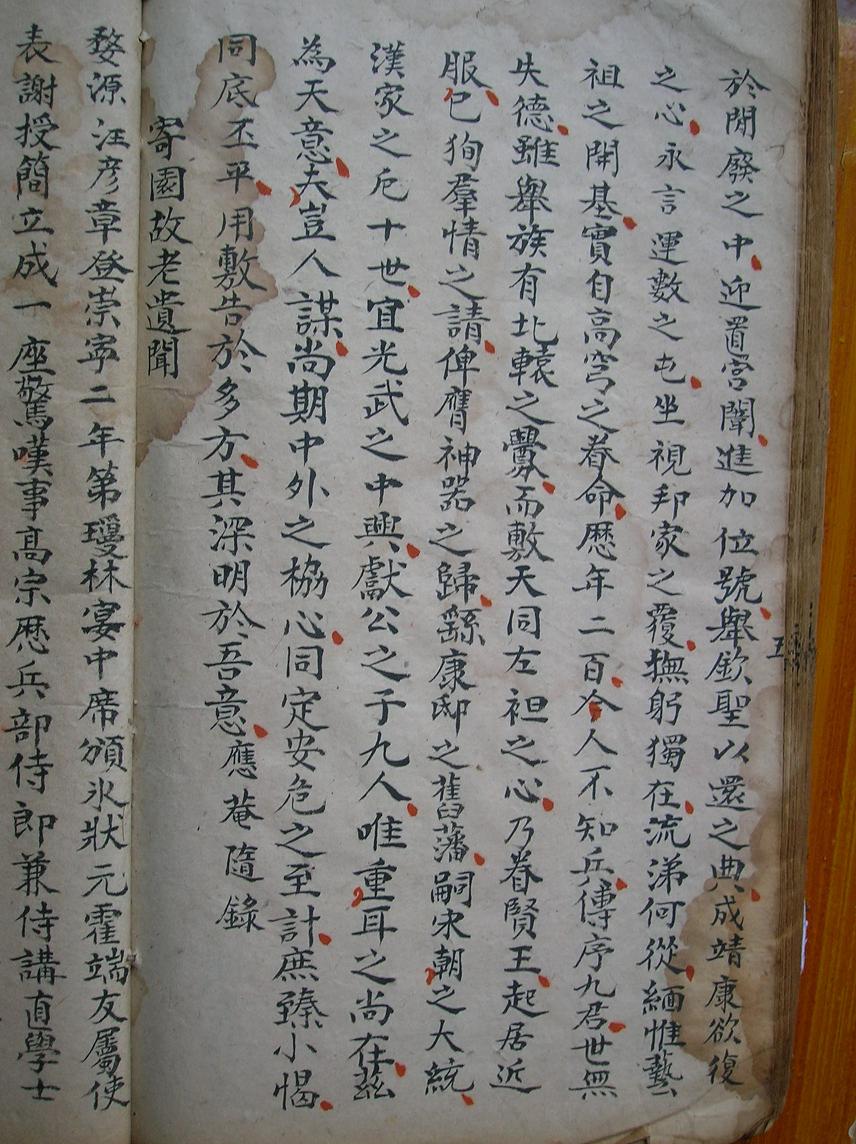 於閒廢之中迎置宮闈進加位號舉欽聖以還之典成靖康欲復
之心永言運數之屯坐視邦家之覆撫躬獨在流涕何從緬惟藝
祖之開基實自高穹之眷命歷年二百今人不知兵傳序九君世無
失德雖舉族有北轅之釁而敷天同左袒之心乃眷賢王起居近
服已狥羣情之請俾膺神器之歸繇康邸之舊藩嗣宋朝之大統
漢家之厄十世宜光武之中興獻公之子九人唯重耳之尚在茲
為天意夫豈人謀尚期中外之協心同定安危之至計庶臻小愒
同底丕平用敷告於多方其深明於吾意應菴隨錄
寄園故老遺聞
婺源汪彥章登崇寧二年第瓊林宴中席頒氷狀元霍端友屬使
表謝授簡立成一座驚嘆事高宗歷兵部侍郎兼侍講直學士
五